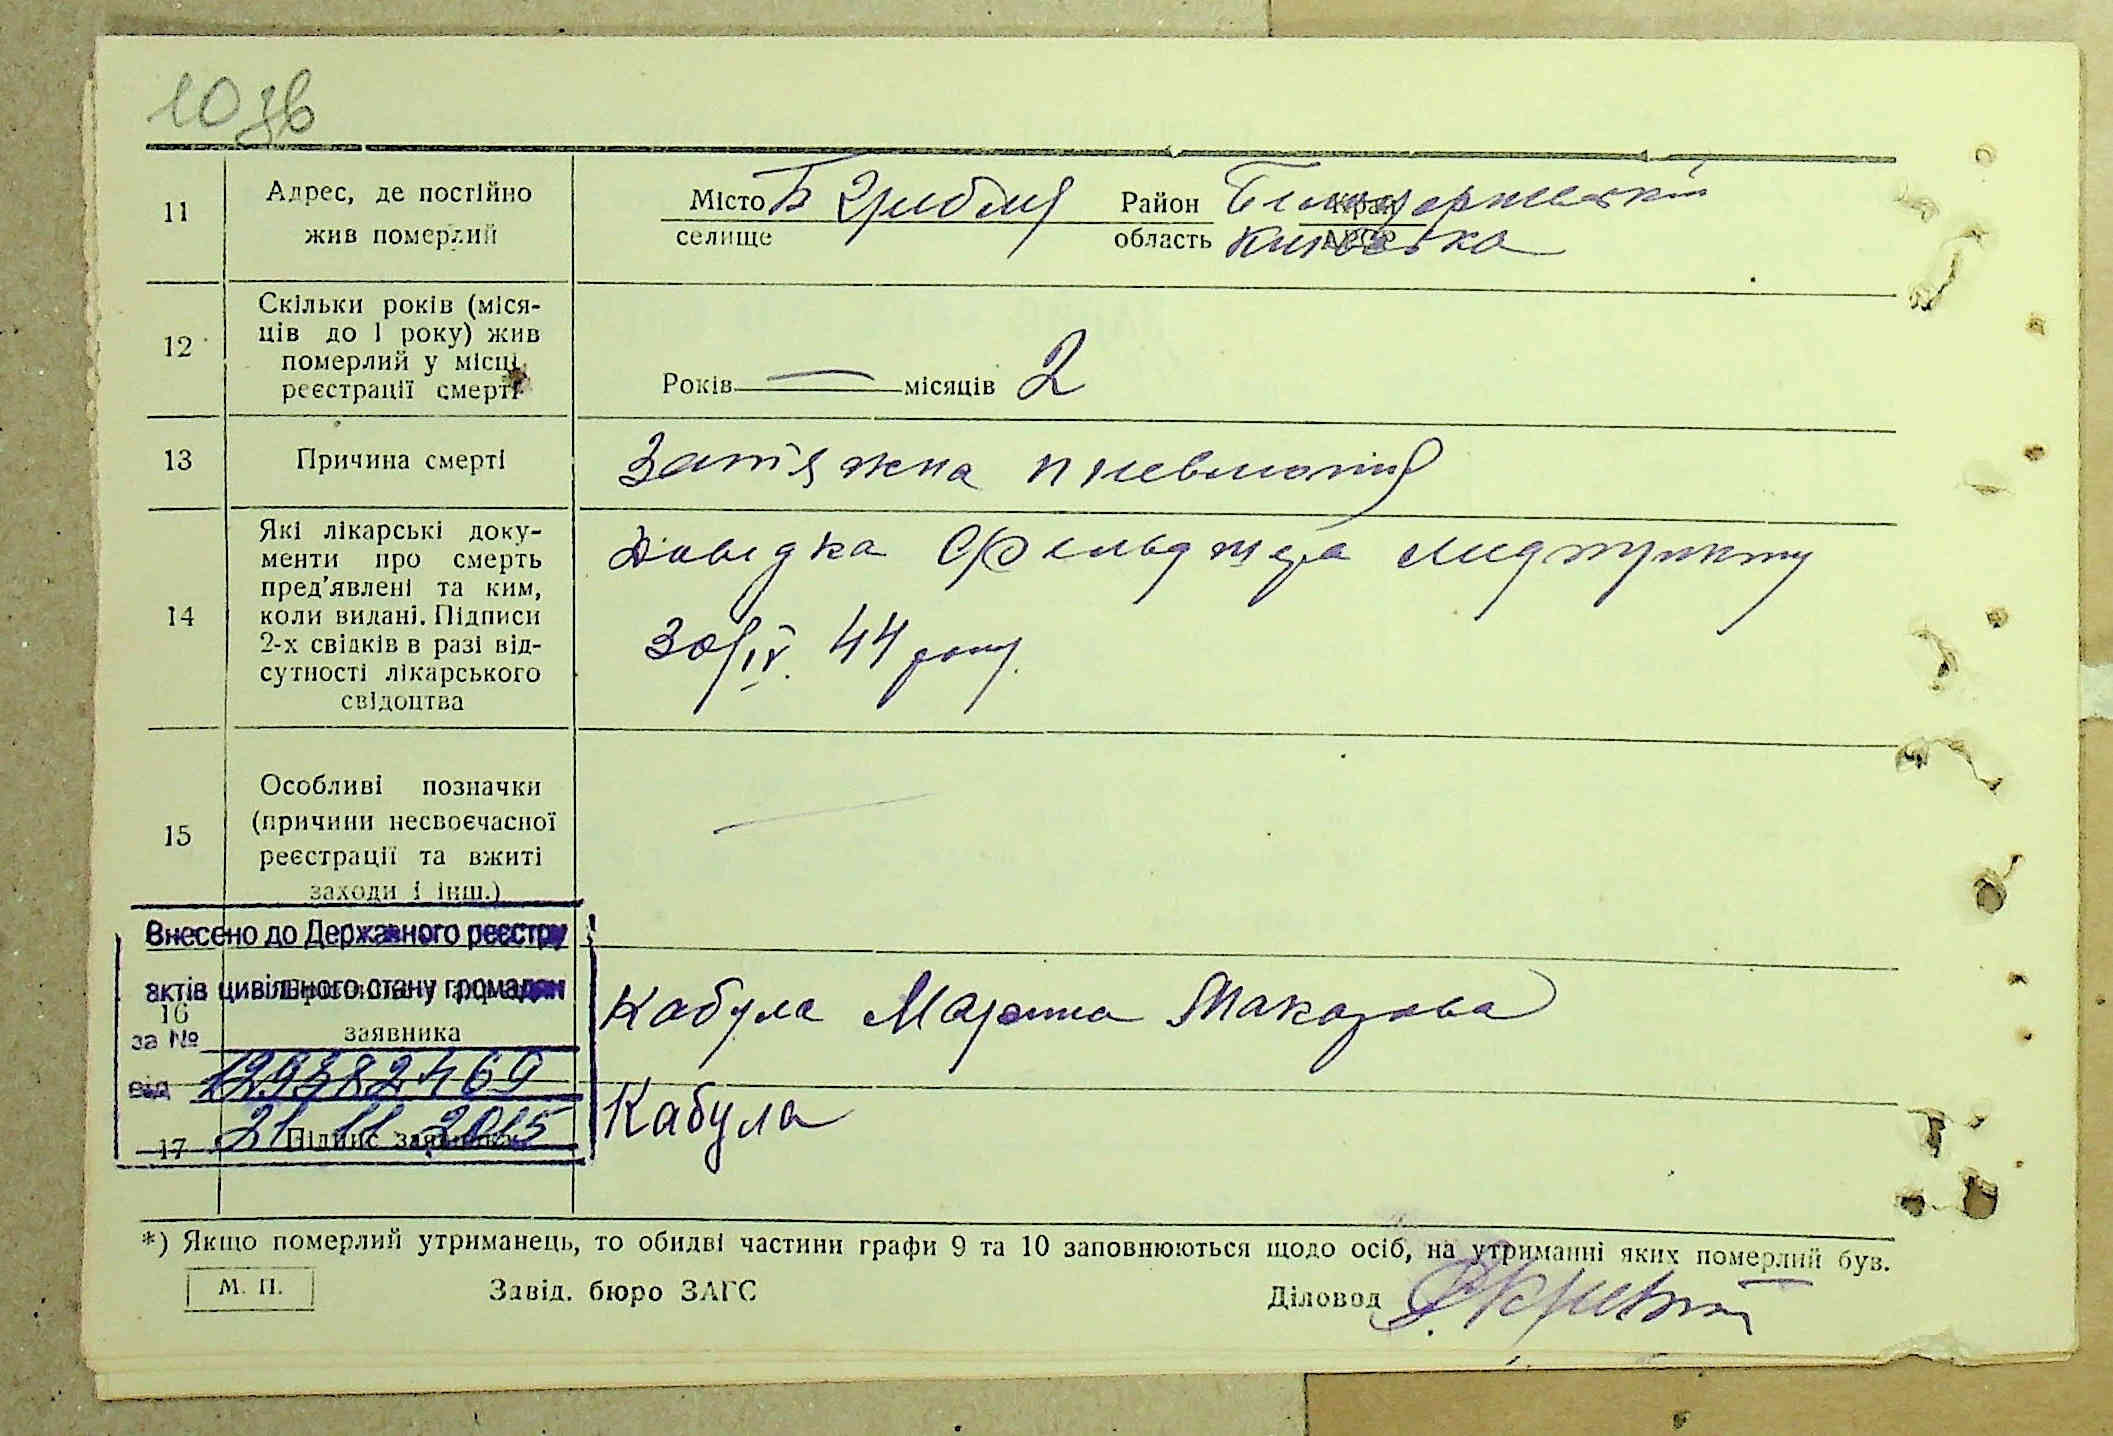 10 зв
11
Адрес, де постійно
жив померлий
Місто
селище
Б Гребля
Район
область
Край
АРСР
Київська
12
Скільки років (міся-
ців до 1 року) жив
померлий у місці
реєстрації смерті
Років — місяців 2
13
Причина смерті
Затяжна пневмонія
14
Які лікарські доку-
менти про смерть
пред'явлені та ким,
коли видані. Підписи
2-х свідків в разі від-
сутності лікарського
свідоцтва
Довідка Фельдшера медпункту
30/IV. 44 року.
15
Особливі позначки
(причини несвоєчасної
реєстрації та вжиті
заходи і інш.)
Внесено до Державного реєстру
актів цивільного стану громадян
16
заявника
за №
129382469
від 21 11 2015
Кабула Марина Макарова
17
Підпис заявника
Кабула
*) Якщо померлий утриманець, то обидві частини графи 9 та 10 заповнюються щодо осіб, на утриманні яких померлий був.
М. П.
Завід. бюро ЗАГС
Діловод